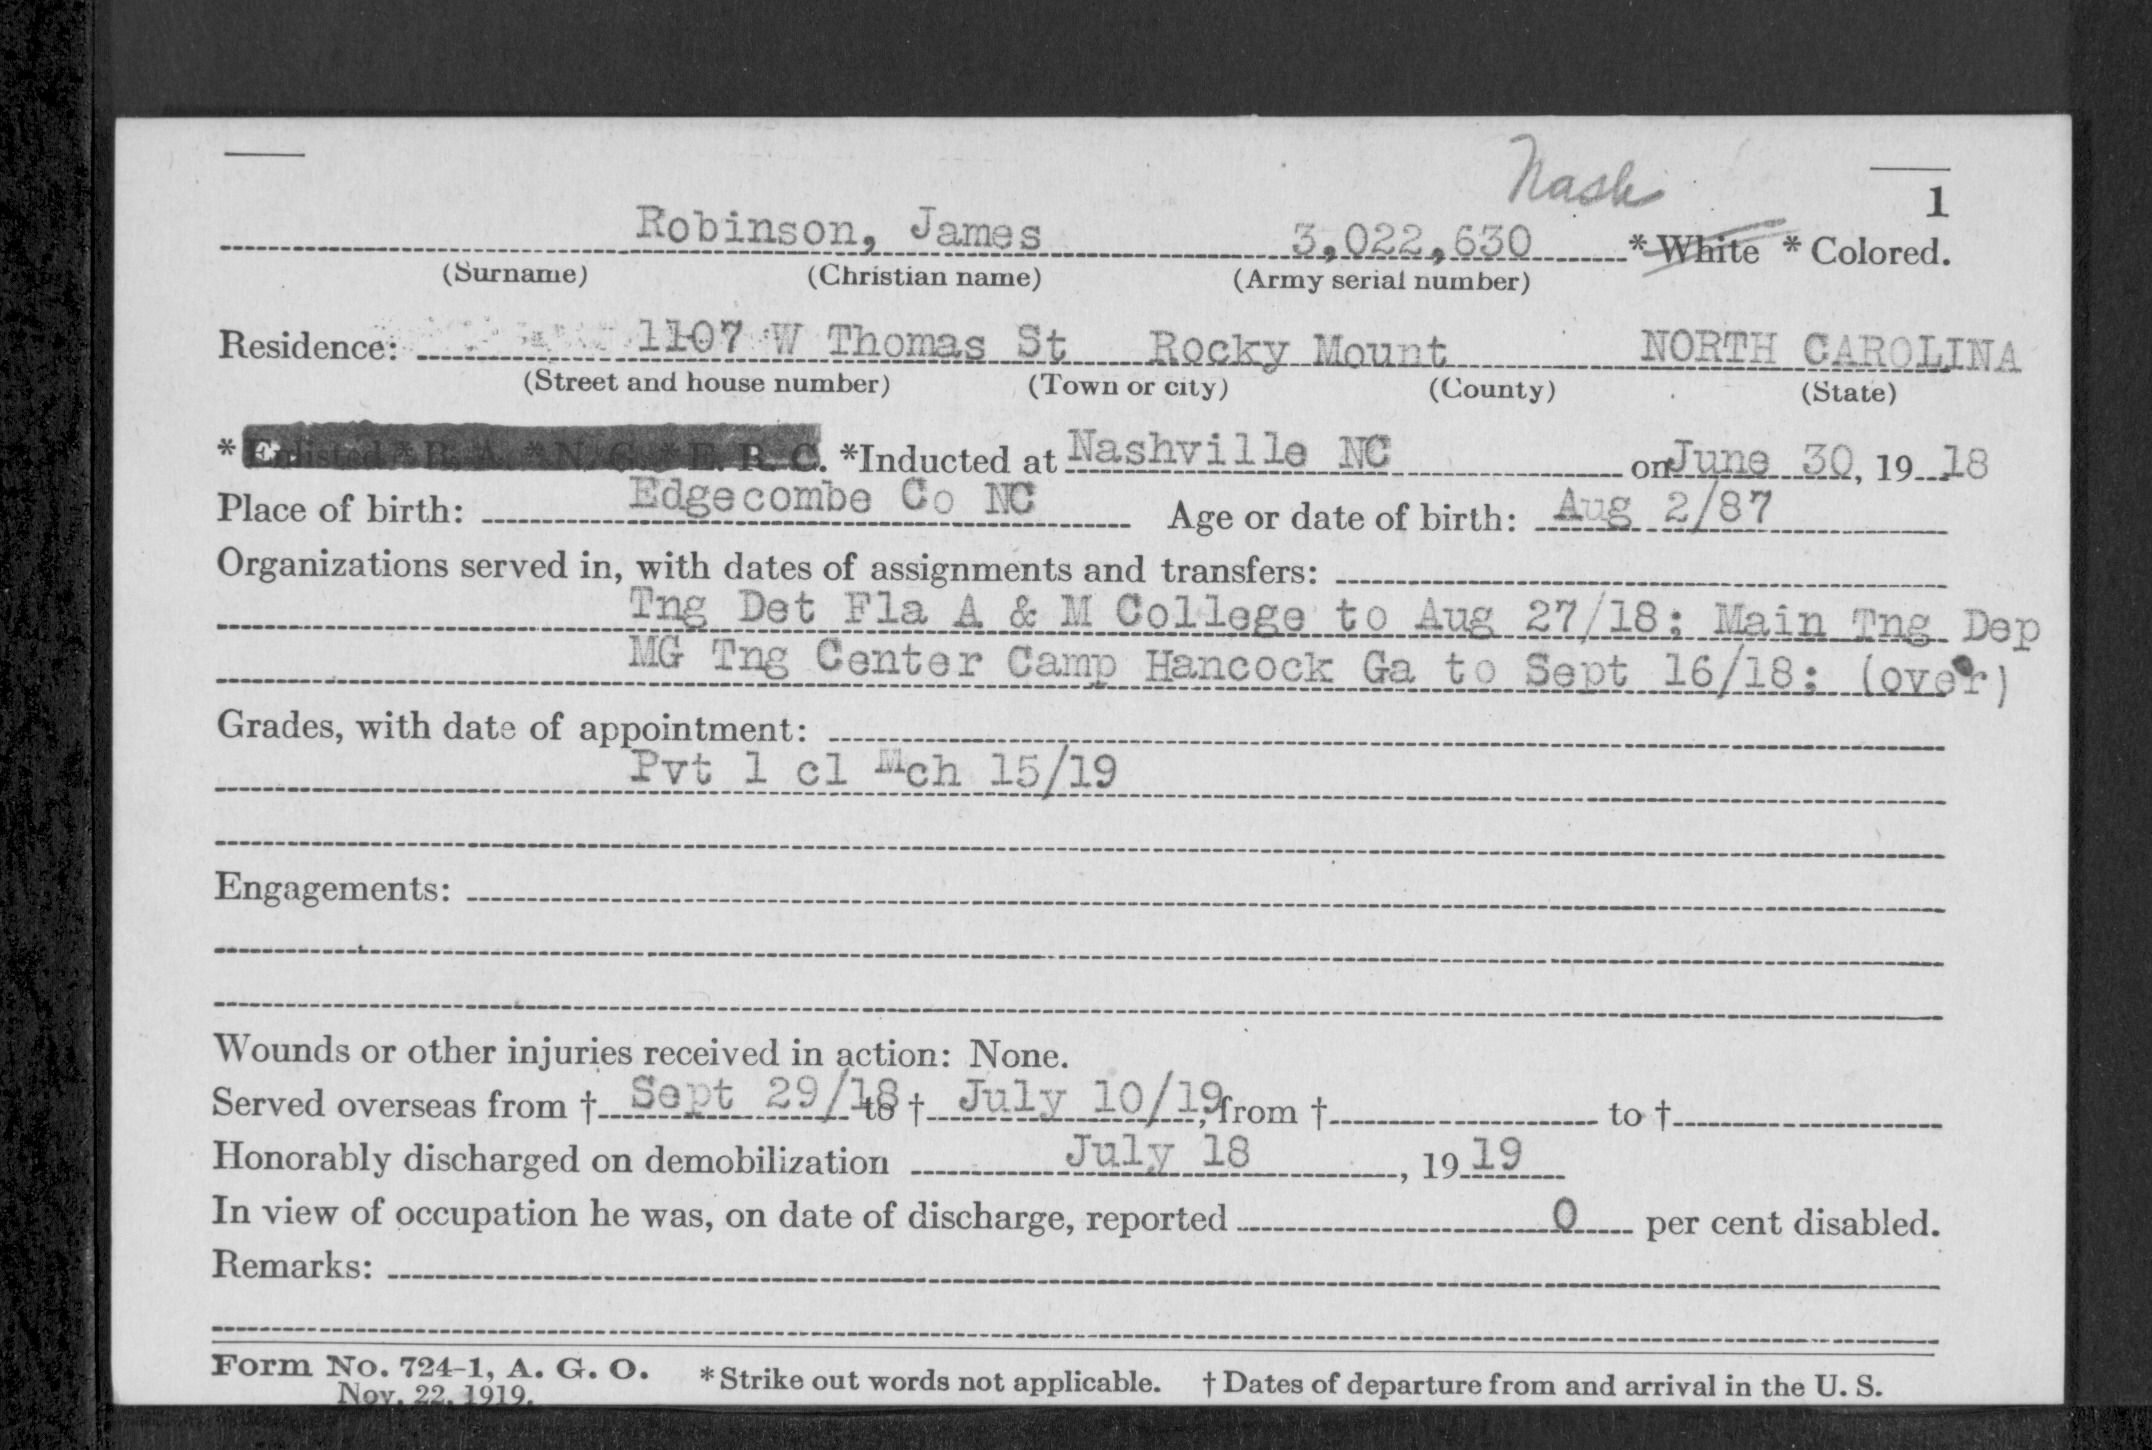 Nash
1
Robinson, James 3,022,630 * White * Colored.
(Surname) (Christian name) (Army serial number)
Residence: 1107 W Thomas St Rocky Mount NORTH CAROLINA
(Street and house number) (Town or city) (County) (State)
* Enlisted * R. A. * N. G. * E. R. C. *Inducted at Nashville NC on June 30, 19 18
Place of birth: Edgecombe Co NC Age or date of birth: Aug 2/87
Organizations served in, with dates of assignments and transfers:
Tng Det Fla A & M College to Aug 27/18; Main Tng Dep
MG Tng Center Camp Hancock Ga to Sept 16/18; (over)
Grades, with date of appointment:
Pvt 1 cl Mch 15/19
Engagements:
Wounds or other injuries received in action: None.
Served overseas from † Sept 29/18 to † July 10/19, from † to †
Honorably discharged on demobilization July 18, 19 19
In view of occupation he was, on date of discharge, reported 0 per cent disabled.
Remarks:
Form No. 724-1, A. G. O. * Strike out words not applicable. † Dates of departure from and arrival in the U. S.
Nov. 22, 1919.